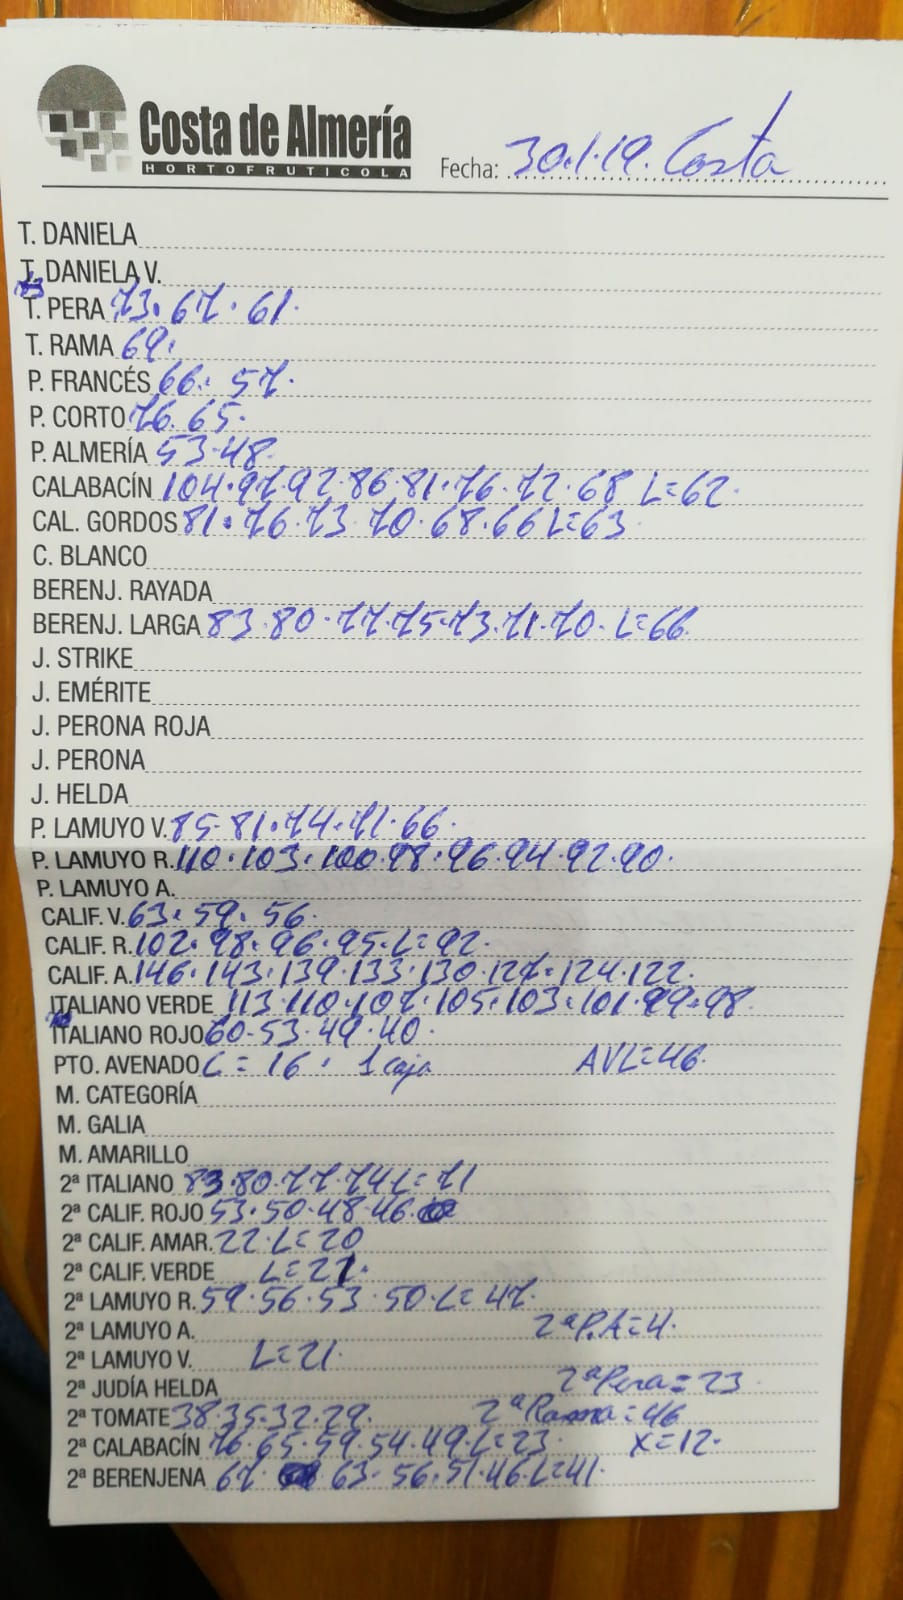 Costa de Almería
HORTOFRUTICOLA
Fecha: 30.1.19. Costa
T. DANIELA
T. DANIELA V.
T. PERA 73. 67. 61.
T. RAMA 69.
P. FRANCÉS 66. 57.
P. CORTO 76. 65.
P. ALMERÍA 53.48.
CALABACÍN 104.97.92.86.81.76.72.68 L=62.
CAL. GORDOS 81.76.73 70.68.66 L=63
C. BLANCO
BERENJ. RAYADA
BERENJ. LARGA 83.80.77.75.73.71.70. L=66.
J. STRIKE
J. EMÉRITE
J. PERONA ROJA
J. PERONA
J. HELDA
P. LAMUYO V. 85.81.74.71.66.
P. LAMUYO R. 110.103.100.98.96.94.92.90.
P. LAMUYO A.
CALIF. V. 63.59.56.
CALIF. R. 102.98.96.95.L=92.
CALIF. A. 146.143.139.133.130.127.124.122.
ITALIANO VERDE 113.110.107.105.103.101.99.98.
ITALIANO ROJO 60.53.49.40.
PTO. AVENADO L=16. 1 caja AVL=46.
M. CATEGORÍA
M. GALIA
M. AMARILLO
2ª ITALIANO 83.80.77.74 L=71
2ª CALIF. ROJO 53.50.48.46.
2ª CALIF. AMAR. 22.L=20
2ª CALIF. VERDE L=21.
2ª LAMUYO R. 59.56.53.50.L=47.
2ª LAMUYO A. 2ªP.A=4.
2ª LAMUYO V. L=21.
2ª JUDÍA HELDA 2ªPera=23.
2ª TOMATE 38.35.32.29. 2ªRama=46
2ª CALABACÍN 76.65.59.54.49.L=23. X=12.
2ª BERENJENA 67. 63.56.51.46.L=41.